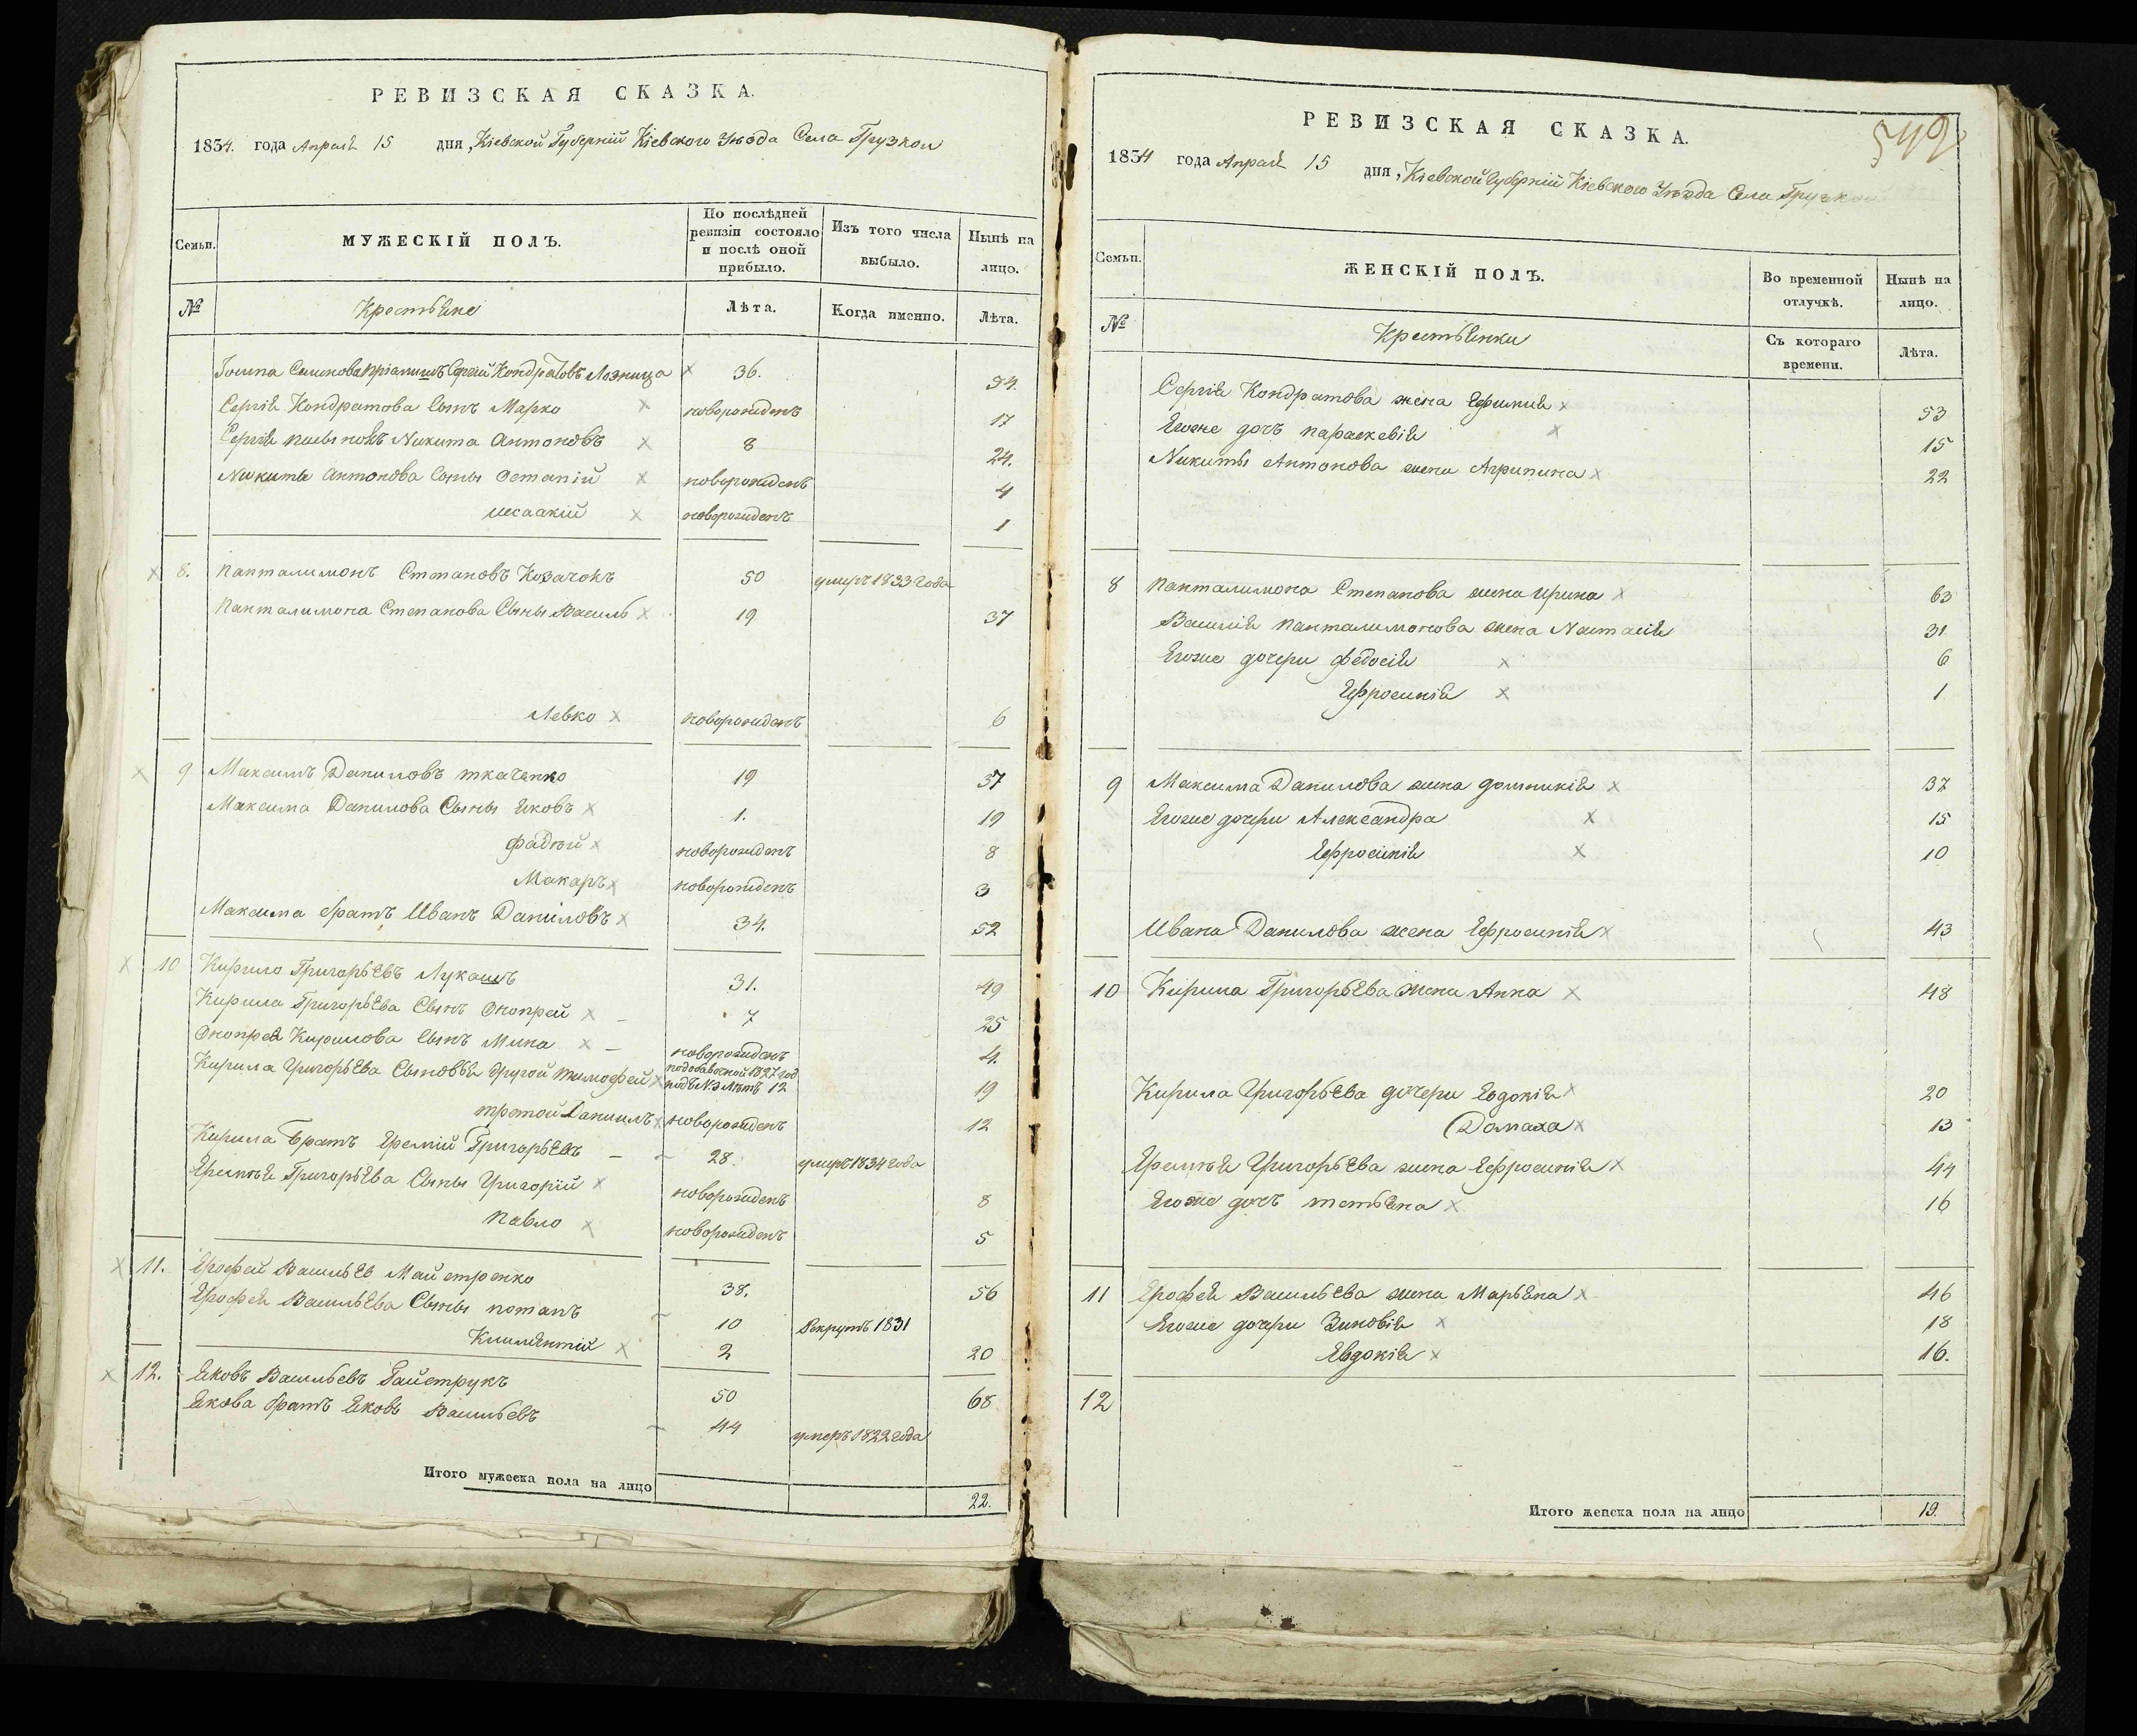 РЕВИЗСКАЯ СКАЗКА.
1834. года Апреля 15 дня, Кіевской Губерніи Кіевского Уезда Села Грузкои
Семьи. МУЖЕСКІЙ ПОЛЪ. По послѣдней ревизіи состояло и послѣ оной прибыло. Изъ того числа выбыло. Нынѣ на лицо.
№ Крестьяне Лѣта. Когда именно. Лѣта.
Семенова Сергѣй Кондратовъ Лозница 36. 54.
Сергія Кондратова Сынъ Марко новорожденъ 17
Сергія Никита Антоновъ 8 24.
Никиты Антонова Сыны Остапій новорожденъ 4
Исаакій новорожденъ 1
8. Панталимонъ Степановъ Козачокъ 50 умеръ 1833 года
Панталимона Степанова Сыны Василь 19 37
Левко новорожденъ 6
9 Максимъ Даниловъ Ткаченко 19 37
Максима Данилова Сыны Яковъ 1. 19
Фадѣй новорожденъ 8
Макаръ новорожденъ 3
Максима братъ Иванъ Даниловъ 34. 52
10 Кирило Григорьевъ Лукашъ 31. 49
Кирила Григорьева Сынъ Онопрей 7 25
Онопрея Кирилова Сынъ Мина новорожденъ 4.
Кирила Григорьева Сыновья другой Тимофей 1827 год 12 19
третой Даниилъ новорожденъ 12
Кирила Братъ Еремій Григорьевъ 28. умеръ 1834 года
Еремѣя Григорьева Сыны Григорій новорожденъ 8
Павло новорожденъ 5
11. Ерофей Васильев Майстренко 38. 56
Ерофея Васильева Сыны Потапъ 10 Рекрутъ 1831
Климентій 2 20
12. Яковъ Васильевъ Байструкъ 50 68
Якова братъ Яковъ Васильевъ 44 умеръ 1822 года
Итого мужеска пола на лицо 22.
549
РЕВИЗСКАЯ СКАЗКА.
1834 года Апреля 15 дня, Кіевской Губерніи Кіевского Уезда Села Грузкои
Семьи. ЖЕНСКІЙ ПОЛЪ. Во временной отлучкѣ. Нынѣ на лицо.
№ Крестьянки Съ котораго времени. Лѣта.
Сергія Кондратова жена Ефимія 53
Егоже дочъ Параскевія 15
Никиты Антонова жена Агрипина 22
8 Панталимона Степанова жена Ирина 63
Василія Панталимонова жена Настасія 31
Егоже дочери Федосія 6
Ефросинія 1
9 Максима Данилова жена Домникія 37
Егоже дочери Александра 15
Ефросинія 10
Ивана Данилова жена Ефросинія 43
10 Кирила Григорьева жена Анна 48
Кирила Григорьева дочери Евдокія 20
Домаха 13
Еремѣя Григорьева жена Ефросинія 44
Егоже дочъ Тетьяна 16
11 Ерофея Васильева жена Марьяна 46
Егоже дочери Зиновія 18
Евдокія 16.
12
Итого женска пола на лицо 19.